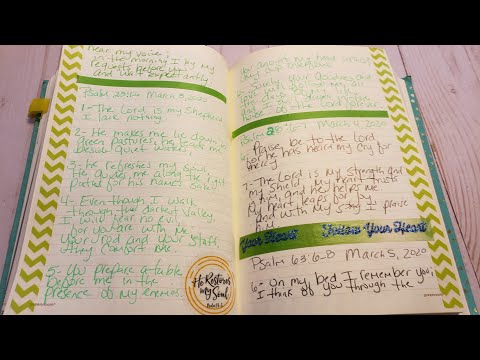 hear my voice;
in the morning I lay my
requests before you
and wait expectantly.
Psalm 23:1-6 March 3, 2020
1- The Lord is my Shepherd
I lack nothing.
2- He makes me lie down in
green pastures, he leads me
beside quiet waters,
3- He refreshes my soul.
He guides me along the right
paths for his name's sake.
4- Even though I walk
through the darkest valley,
I will fear no evil
for you are with me
Your rod and your staff,
they comfort me.
5- You prepare a table
before me in the
presence of my enemies.
He Restores
my Soul
You anoint my head
Surely your goodness and
will follow me all
the days of my life
of the Lord forever
Psalm 28:6-7 March 4, 2020
Praise be to the Lord
for he has heard my cry for
mercy.
7- The Lord is my strength and
my shield; my heart trusts
him, and he helps me
My heart leaps for joy
and with my song I praise
him
Your Heart Follow Your Heart
Psalm 63:6-8 March 5, 2020
6- On my bed I remember you;
I think of you through the